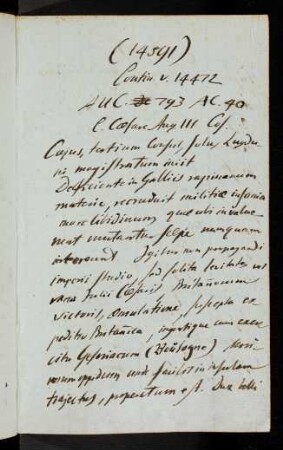 (14591)
Contin v. 14472
AUC. 793 AC. 40
C. Cæsare Aug III Cos.
Cajus, tertium Consul, solus, Lugdu
ni magistratum iniit
Deficiente in Galliis rapinarum
materie, recruduit militiæ insania
more libidinum quæ ubi invalue
runt mutantur sæpe nunquam
intereunt Igitur non propagandi
imperii studio, sed solita levitate
Julii Cæsaris Britannorum
victoris, æmulatione, suscepta ex
peditio Britannica, ingentique cum exer
citu Gesoriacum (Boulogne), Mori
norum oppidum unde facilior in insulam
trajectus, properatum est. Dux belli